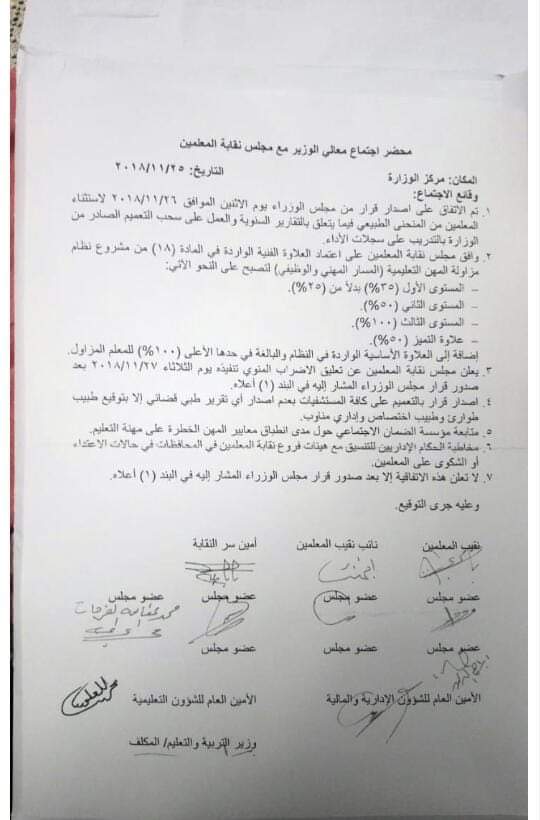 محضر اجتماع معالي الوزير مع مجلس نقابة المعلمين
المكان: مركز الوزارة التاريخ: ٢٠١٨/١١/٢٥
وقائع الاجتماع:
١. تم الاتفاق على اصدار قرار من مجلس الوزراء يوم الاثنين الموافق ٢٠١٨/١١/٢٦ لاستثناء
المعلمين من المنحنى الطبيعي فيما يتعلق بالتقارير السنوية والعمل على سحب التعميم الصادر من
الوزارة بالتدريب على سجلات الأداء.
٢. وافق مجلس نقابة المعلمين على اعتماد العلاوة الفنية الواردة في المادة (١٨) من مشروع نظام
مزاولة المهن التعليمية (المسار المهني والوظيفي) لتصبح على النحو الآتي:
– المستوى الأول (٣٥%) بدلاً من (٢٥%).
– المستوى الثاني (٥٠%).
– المستوى الثالث (١٠٠%).
– علاوة التميز (٥٠%).
إضافة إلى العلاوة الأساسية الواردة في النظام والبالغة في حدها الأعلى (١٠٠%) للمعلم المزاول.
٣. يعلن مجلس نقابة المعلمين عن تعليق الاضراب المنوي تنفيذه يوم الثلاثاء ٢٠١٨/١١/٢٧ بعد
صدور قرار مجلس الوزراء المشار إليه في البند (١) أعلاه.
٤. اصدار قرار بالتعميم على كافة المستشفيات بعدم اصدار أي تقرير طبي قضائي إلا بتوقيع طبيب
طوارئ وطبيب اختصاص وإداري مناوب.
٥. متابعة مؤسسة الضمان الاجتماعي حول مدى انطباق معايير المهن الخطرة على مهنة التعليم.
٦. مخاطبة الحكام الإداريين للتنسيق مع هيئات فروع نقابة المعلمين في المحافظات في حالات الاعتداء
أو الشكوى على المعلمين.
٧. لا تعلن هذه الاتفاقية إلا بعد صدور قرار مجلس الوزراء المشار إليه في البند (١) أعلاه.
وعليه جرى التوقيع.
نقيب المعلمين نائب نقيب المعلمين أمين سر النقابة
عضو مجلس عضو مجلس عضو مجلس عضو مجلس
عضو مجلس عضو مجلس عضو مجلس
الأمين العام للشؤون الإدارية والمالية الأمين العام للشؤون التعليمية
وزير التربية والتعليم/ المكلف